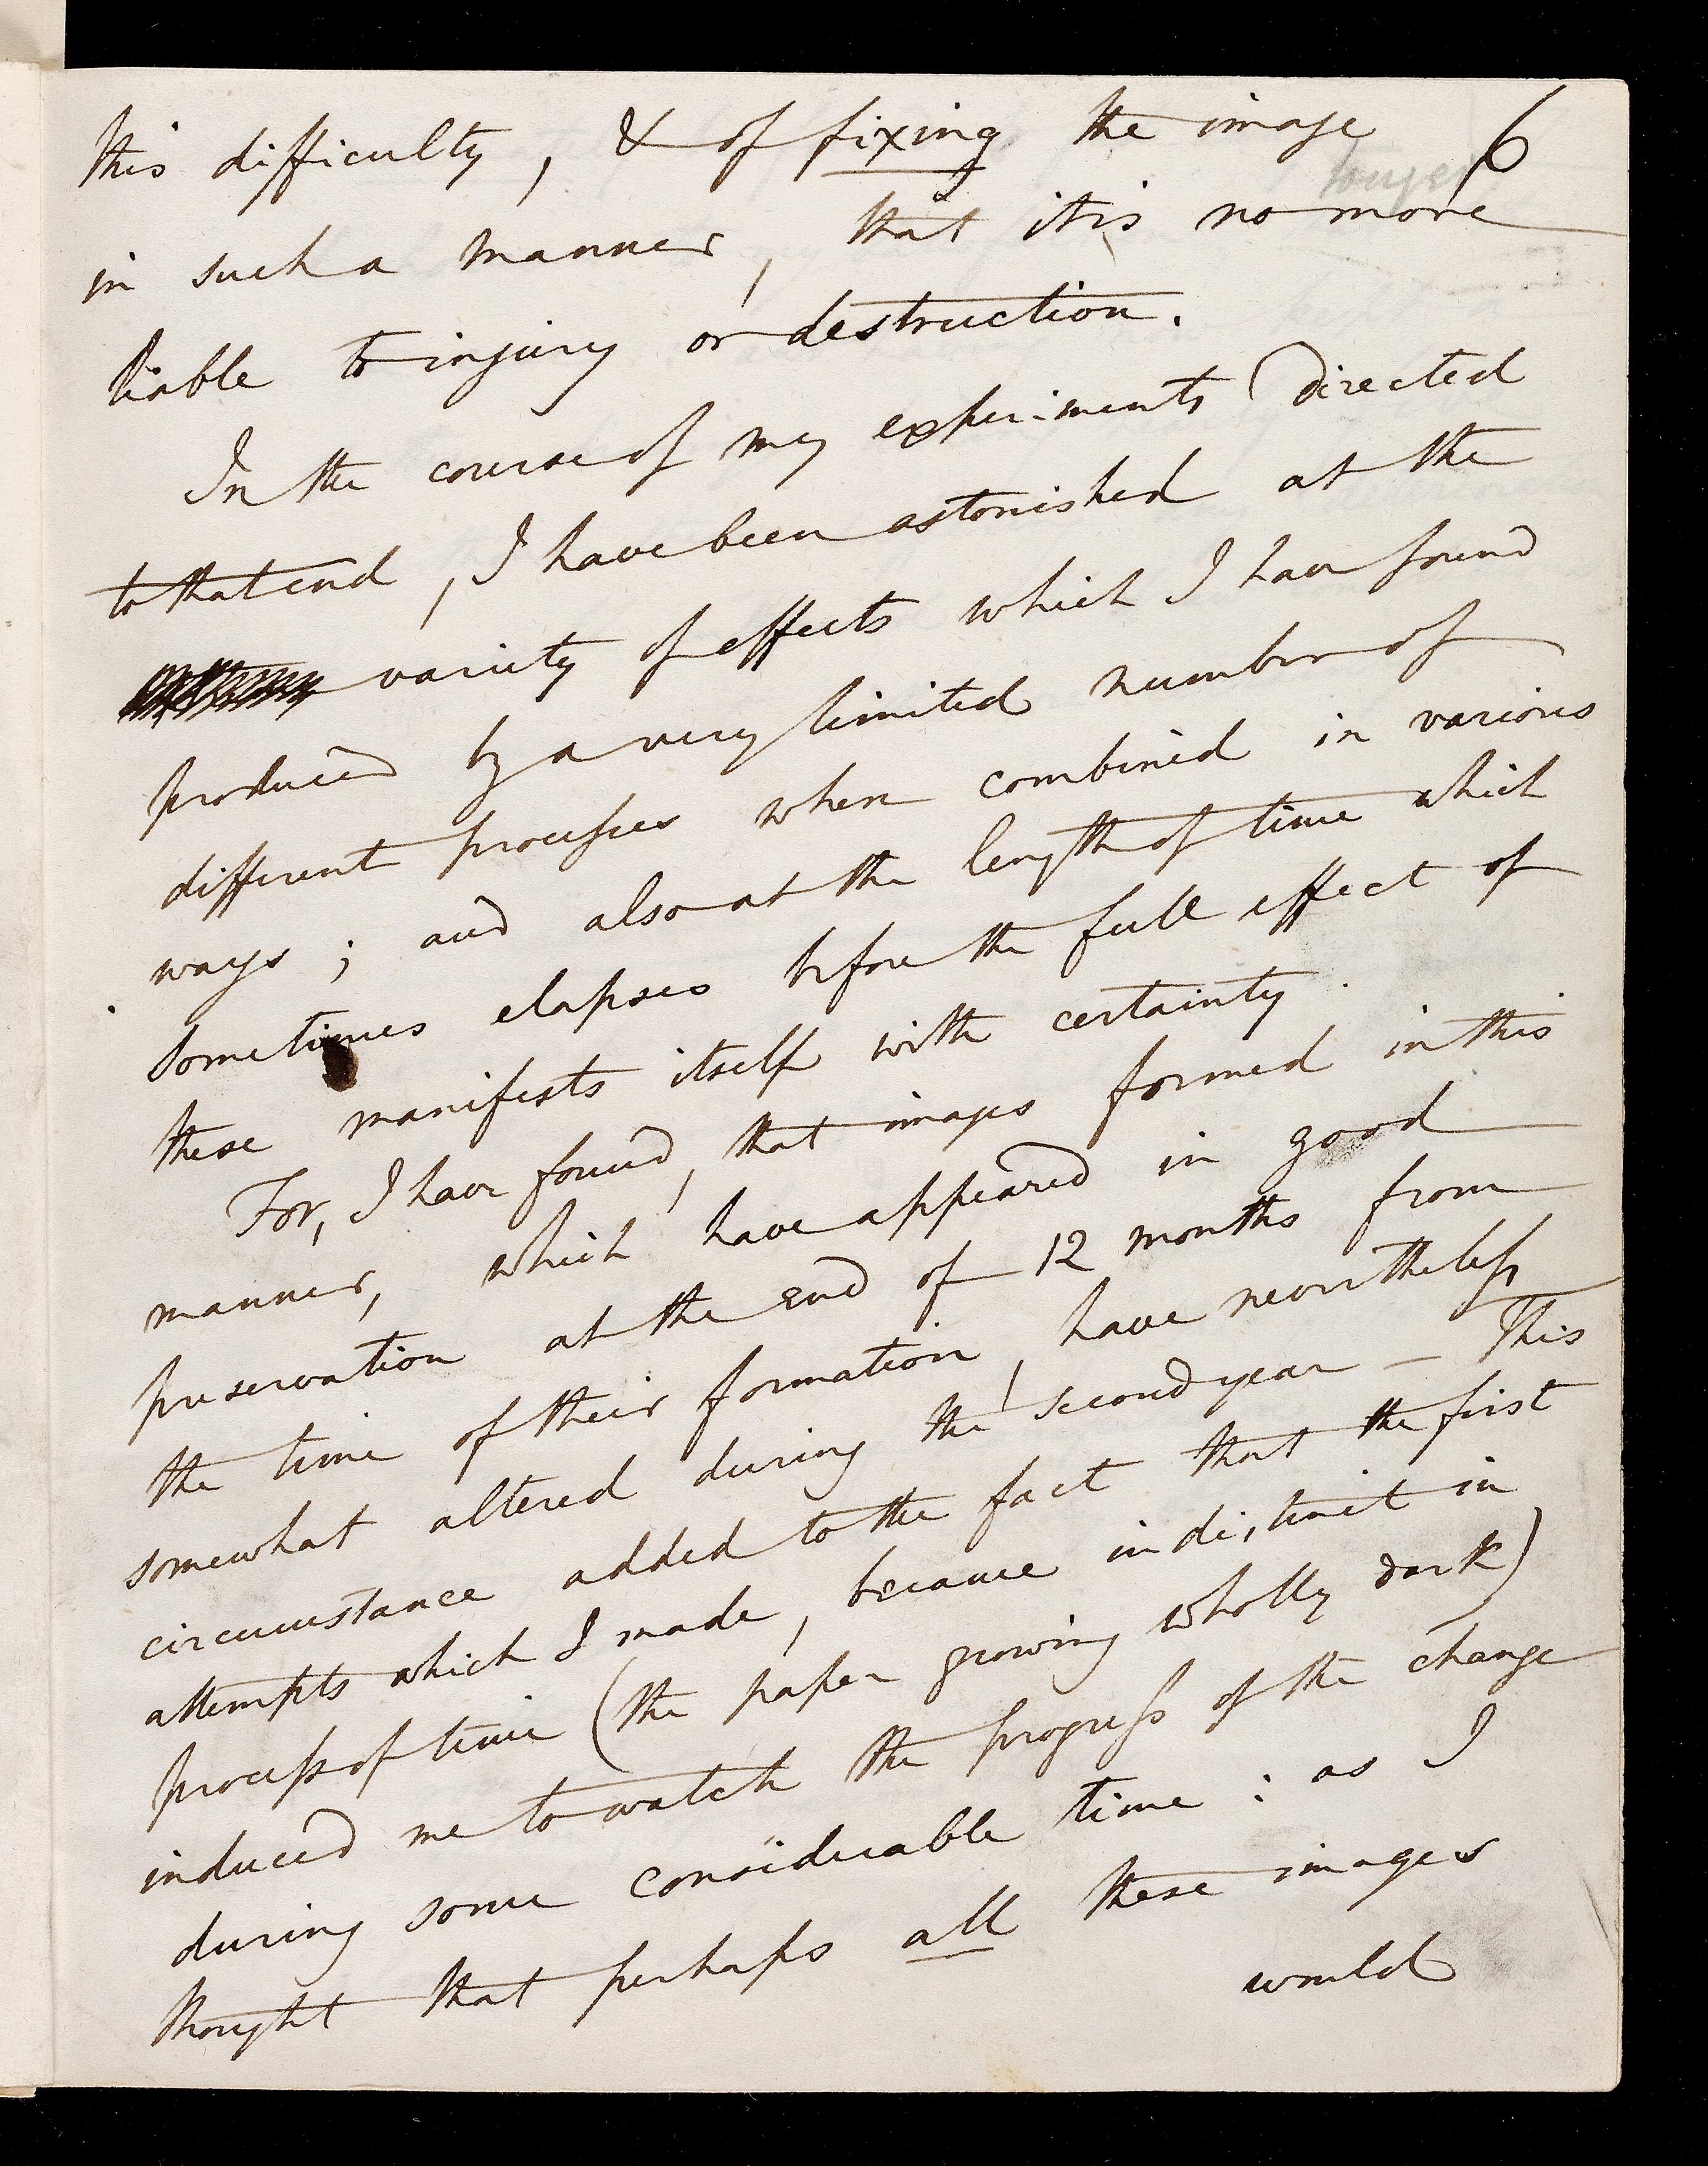 6
this difficulty, & of fixing the image
longer
in such a manner, that it is no more
liable to injury or destruction.
In the course of my experiments directed
to that end, I have been astonished at the
variety of effects which I have found
produced by a very limited number of
different processes when combined in various
ways; and also at the length of time which
sometimes elapses before the full effect of
these manifests itself with certainty.
For, I have found, that images formed in this
manner, which have appeared in good
preservation at the end of 12 months from
the time of their formation, have nevertheless
somewhat altered during the second year – This
circumstance added to the fact that the first
attempts which I made, became indistinct in
process of time (the paper growing wholly dark)
induced me to watch the progress of the change
during some considerable time: as I
thought that perhaps all these images
would